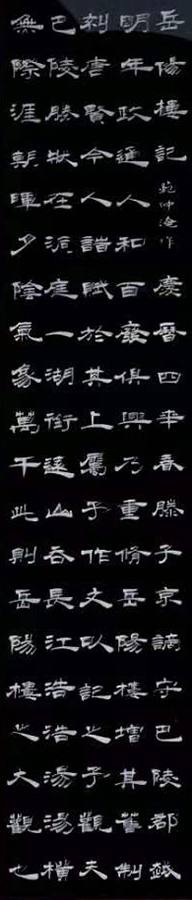 岳陽樓記 范仲淹作 慶曆四年春滕子京謫守巴陵郡越
明年政通人和百廢俱興乃重脩岳陽樓增其舊制
刻唐賢今人詩賦於其上屬予作文以記之予觀夫
巴陵勝狀在洞庭一湖銜遠山吞長江浩浩湯湯橫
無際涯朝暉夕陰氣象萬千此則岳陽樓之大觀也